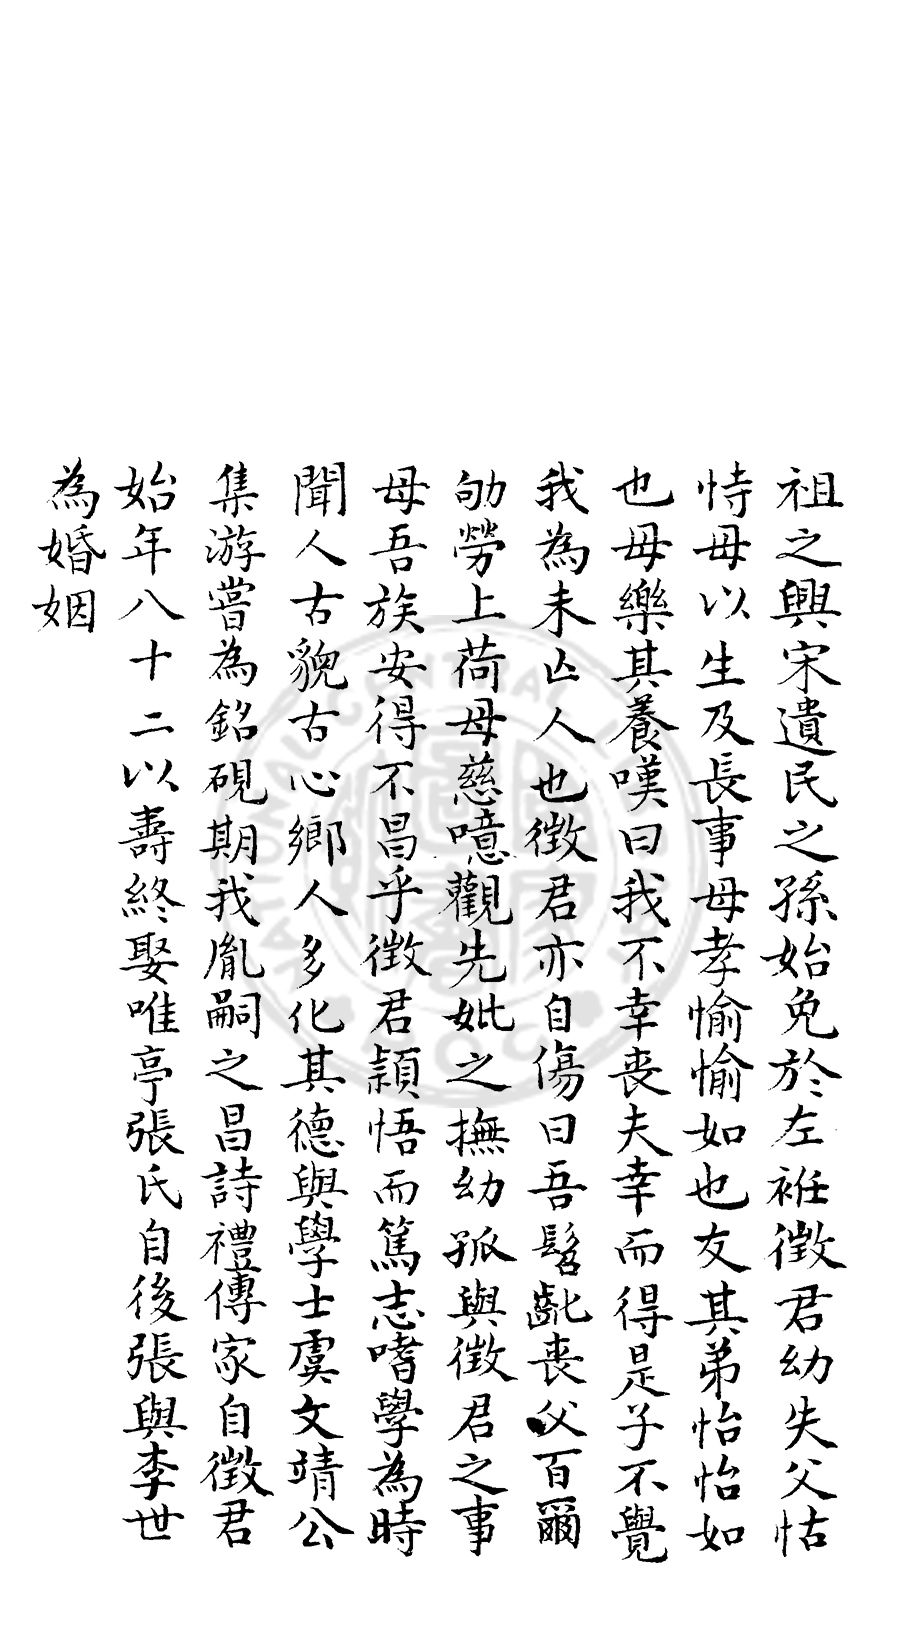 祖之興宋遺民之孫始免於左袵徴君幼失父怙
恃母以生及長事母孝愉愉如也友其弟怡怡如
也母樂其養嘆曰我不幸丧夫幸而得是子不覺
我為未亾人也徴君亦自傷曰吾髫齔丧父百爾
劬勞上荷母慈噫觀先妣之撫幼孤與徴君之事
母吾族安得不昌乎徴君頴悟而篤志嗜學為時
聞人古貌古心鄉人多化其德與學士虞文靖公
集游嘗為銘硯期我胤嗣之昌詩禮傳家自徴君
始年八十二以壽終娶唯亭張氏自後張與李世
為婚姻